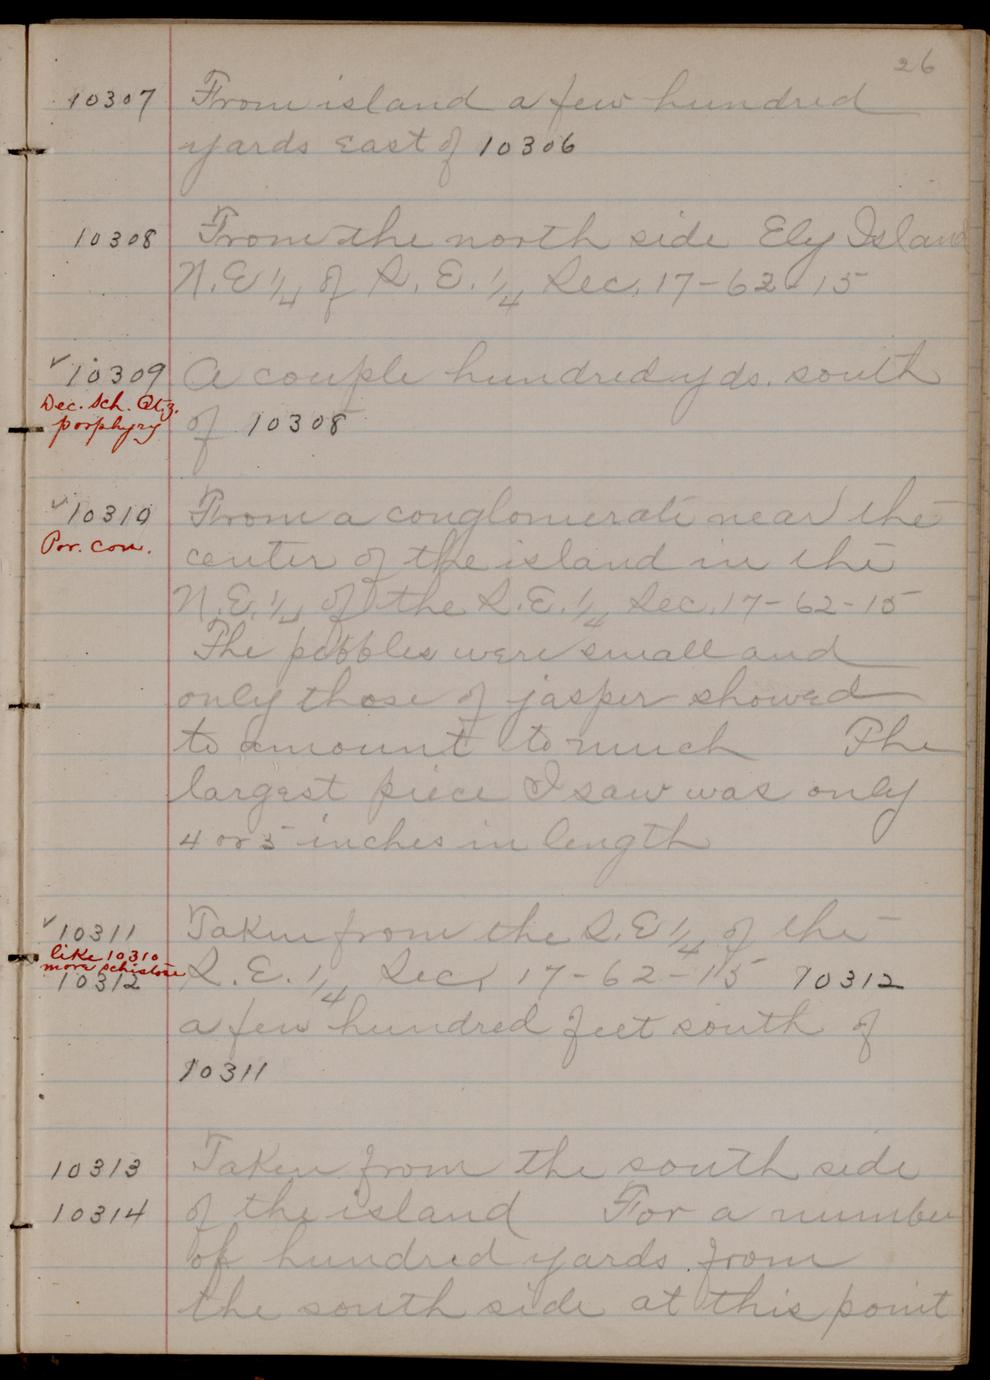 26
10307 From island a few hundred
yards east of 10306
10308 From the north side Ely Island
N.E 1/4 of S. E. 1/4 Sec. 17-62-15
✓10309 A couple hundred yds. south
Dec. Sch. Qtz.
porphyry
of 10308
✓10310 From a conglomerate near the
Por. con.
center of the island in the
N.E. 1/4 of the S.E. 1/4 Sec. 17-62-15
The pebbles were small and
only those of jasper showed
to amount to much The
largest piece I saw was only
4 or 5 inches in length
✓10311 Taken from the S.E 1/4 of the
like 10310
more schistose
10312 S. E. 1/4 Sec. 17-62-15 10312
a few hundred feet south of
10311
10313 Taken from the south side
10314 of the island For a number
of hundred yards from
the south side at this point